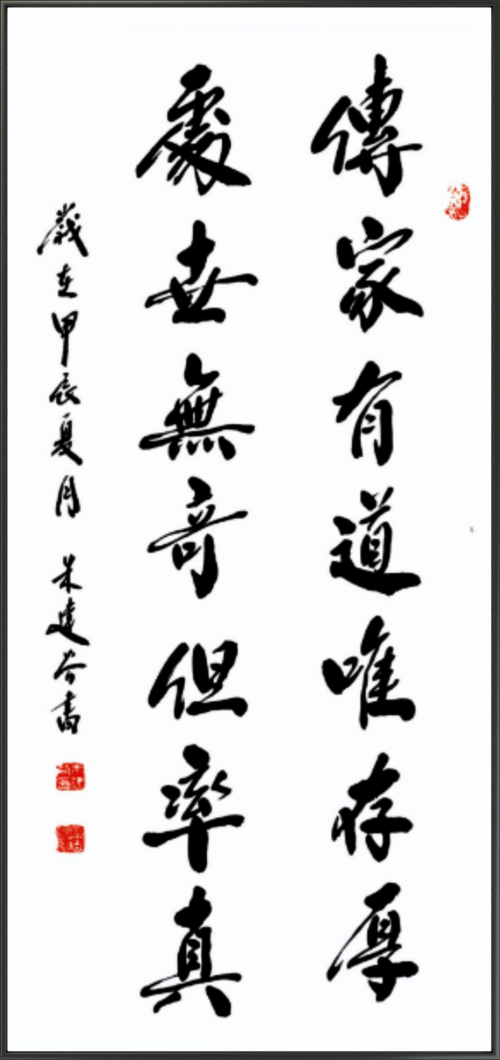 傳家有道唯存厚
處世無奇但率真
歲在甲辰夏月 朱書